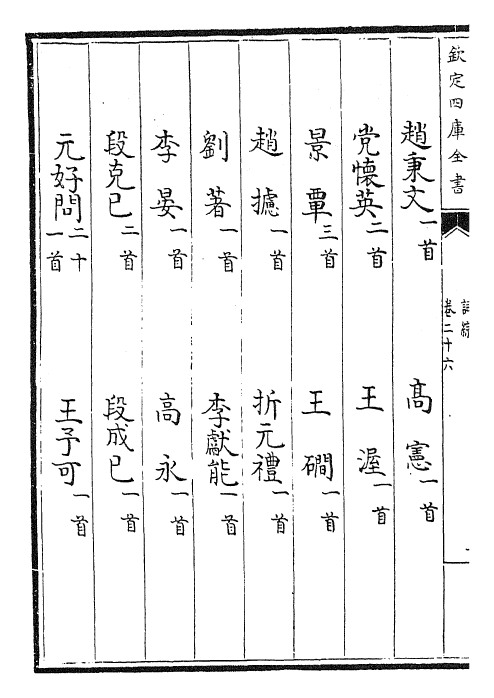 欽定四庫全書
詞綜
卷二十六
趙秉文一首 高憲一首
党懷英二首 王渥一首
景覃三首 王磵一首
趙攄一首 折元禮一首
劉著一首 李獻能一首
李晏一首 高永一首
段克已二首 段成已一首
元好問二十一首 王予可一首